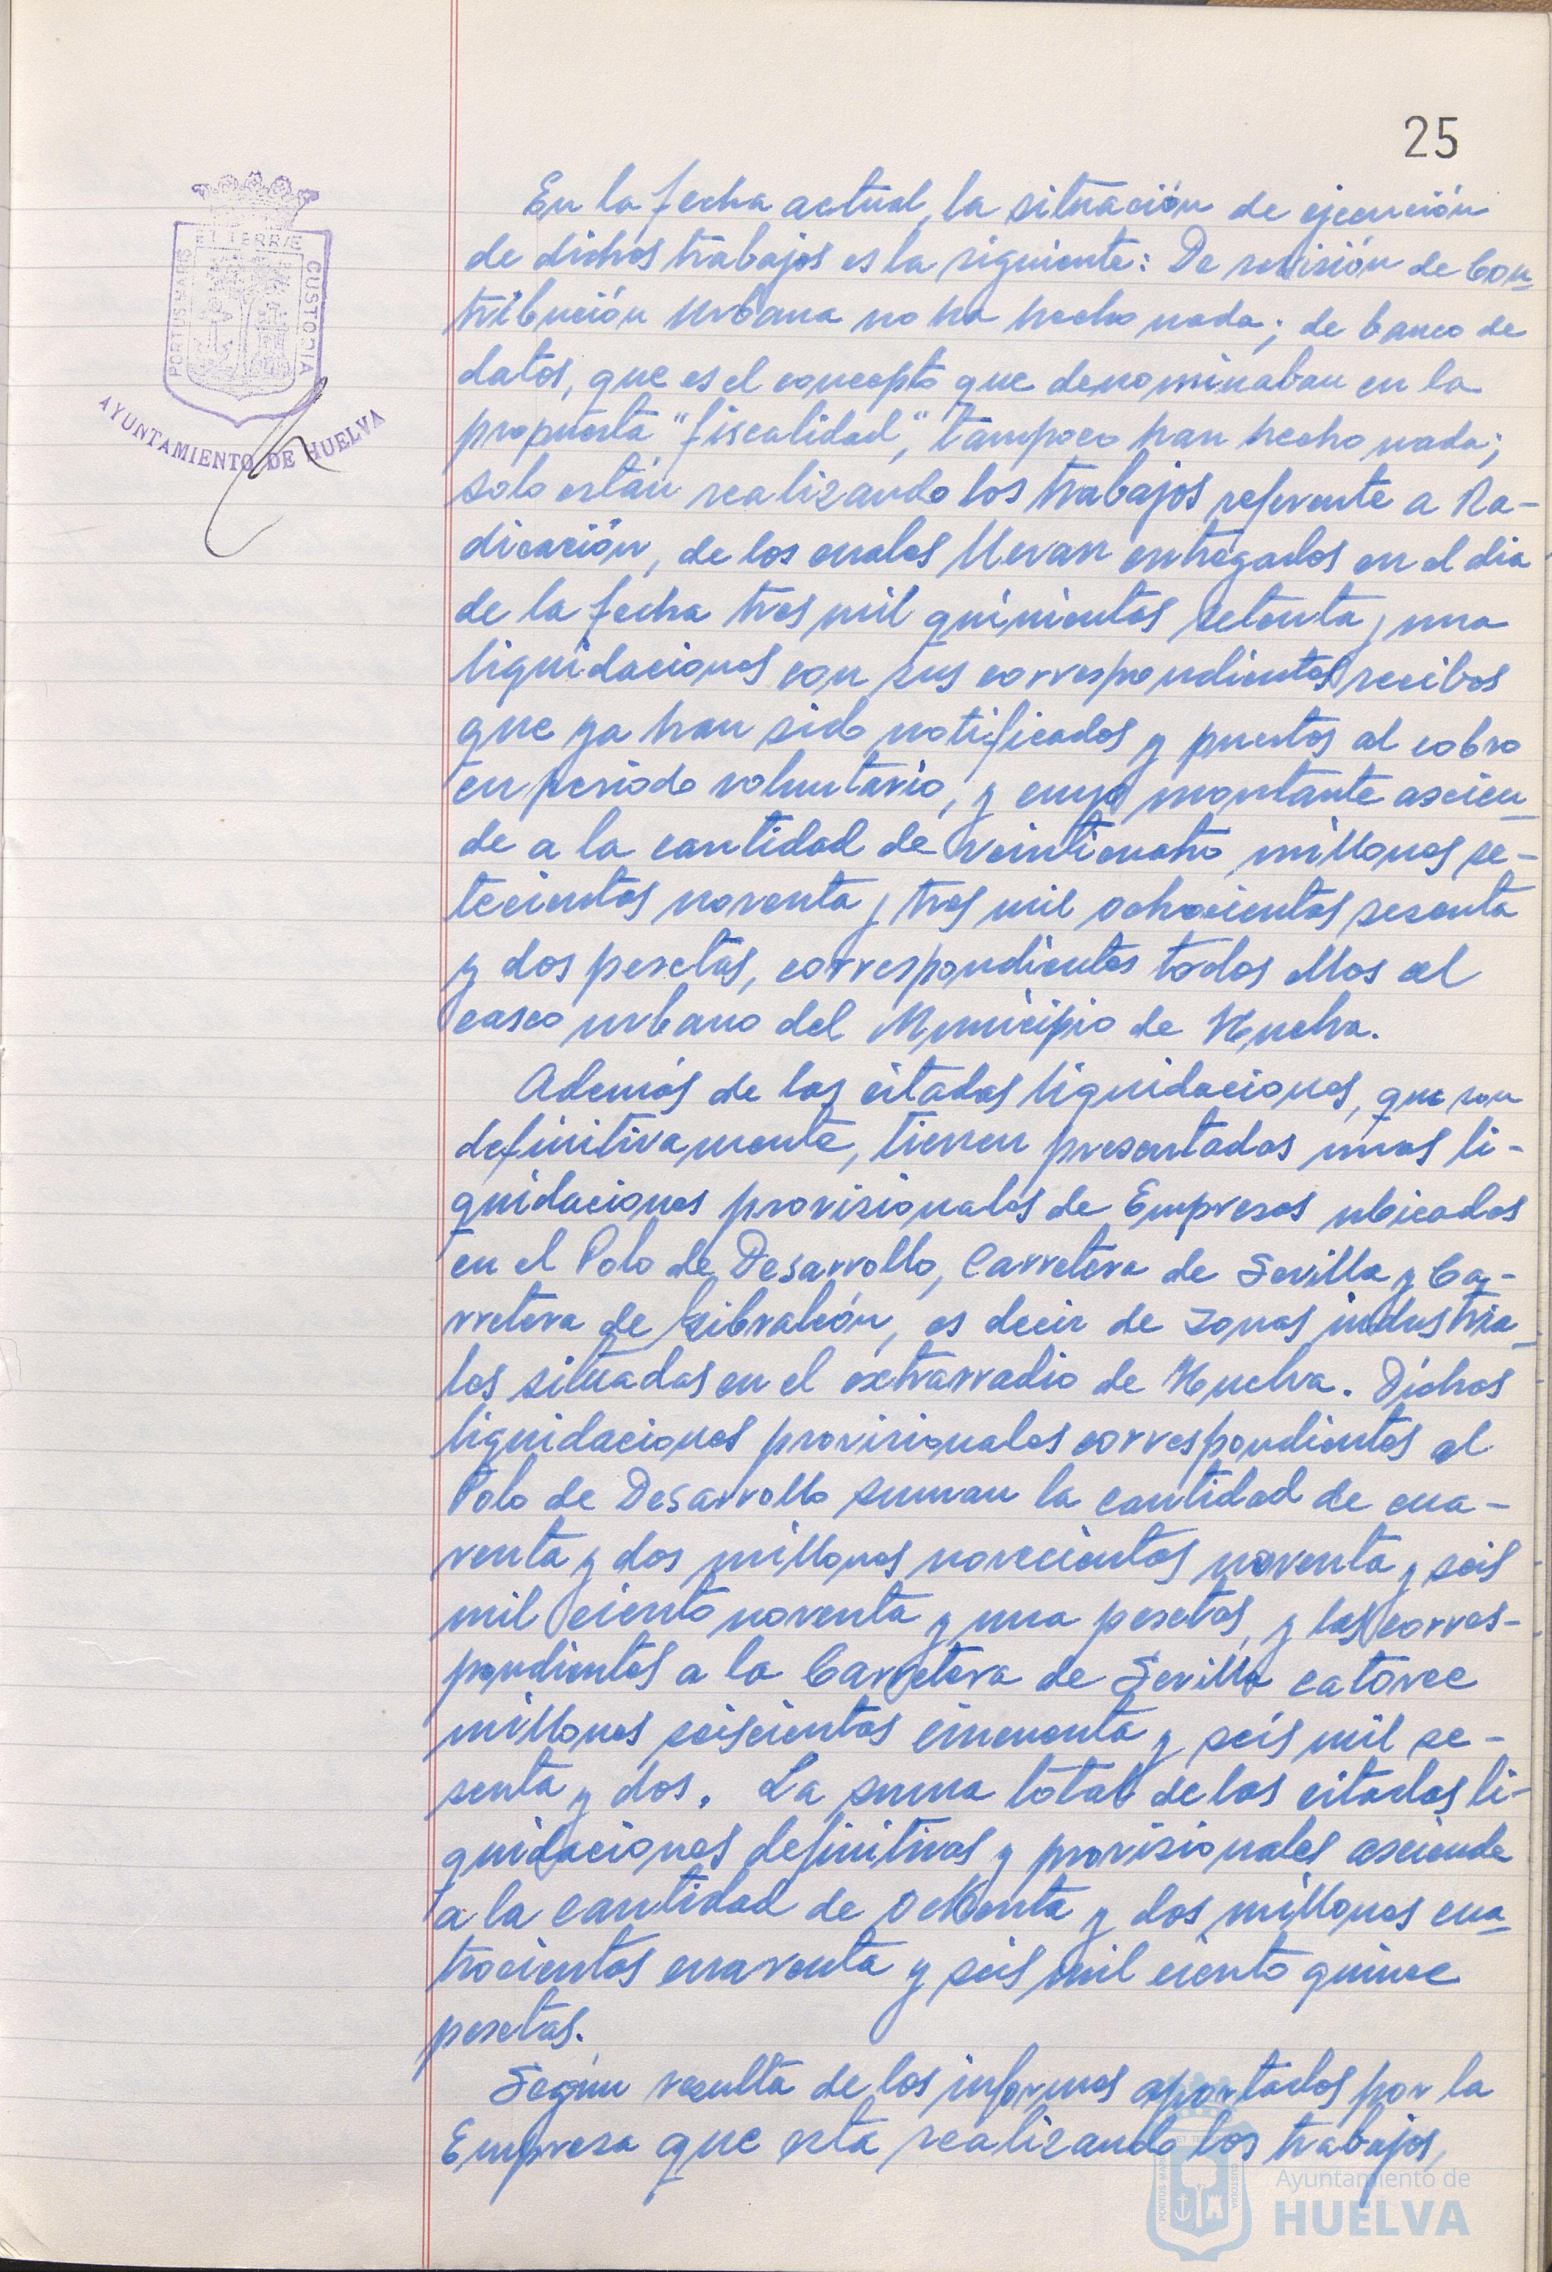 25
ET TERRÆ
PORTUS MARIS
CUSTODIA
AYUNTAMIENTO DE HUELVA
En la fecha actual, la situación de ejecución
de dichos trabajos es la siguiente: De revisión de Con-
tribución Urbana no ha hecho nada; de banco de
datos, que es el concepto que denominaban en la
propuesta "fiscalidad", tampoco han hecho nada;
solo están realizando los trabajos referente a Ra-
dicación, de los cuales llevan entregados en el dia
de la fecha tres mil quinientas setenta y una
liquidaciones con sus correspondientes recibos
que ya han sido notificados y puestos al cobro
en periodo voluntario, y cuyo montante ascien-
de a la cantidad de veinticuatro millones se-
tecientas noventa y tres mil ochocientas sesenta
y dos pesetas, correspondientes todos ellos al
casco urbano del Municipio de Huelva.
Además de las citadas liquidaciones, que son
definitivamente, tienen presentadas unas li-
quidaciones provisionales de Empresas ubicadas
en el Polo de Desarrollo, Carretera de Sevilla y Ca-
rretera de Gibraleón, es decir de zonas industria-
les situadas en el extrarradio de Huelva. Dichas
liquidaciones provisionales correspondientes al
Polo de Desarrollo suman la cantidad de cua-
renta y dos millones novecientas noventa y seis
mil ciento noventa y una pesetas, y las corres-
pondientes a la Carretera de Sevilla catorce
millones seiscientas cincuenta y seis mil se-
senta y dos. La suma total de las citadas li-
quidaciones definitivas y provisionales asciende
a la cantidad de ochenta y dos millones cua-
trocientas cuarenta y seis mil ciento quince
pesetas.
Según resulta de los informes aportados por la
Empresa que esta realizando los trabajos,
Ayuntamiento de
HUELVA